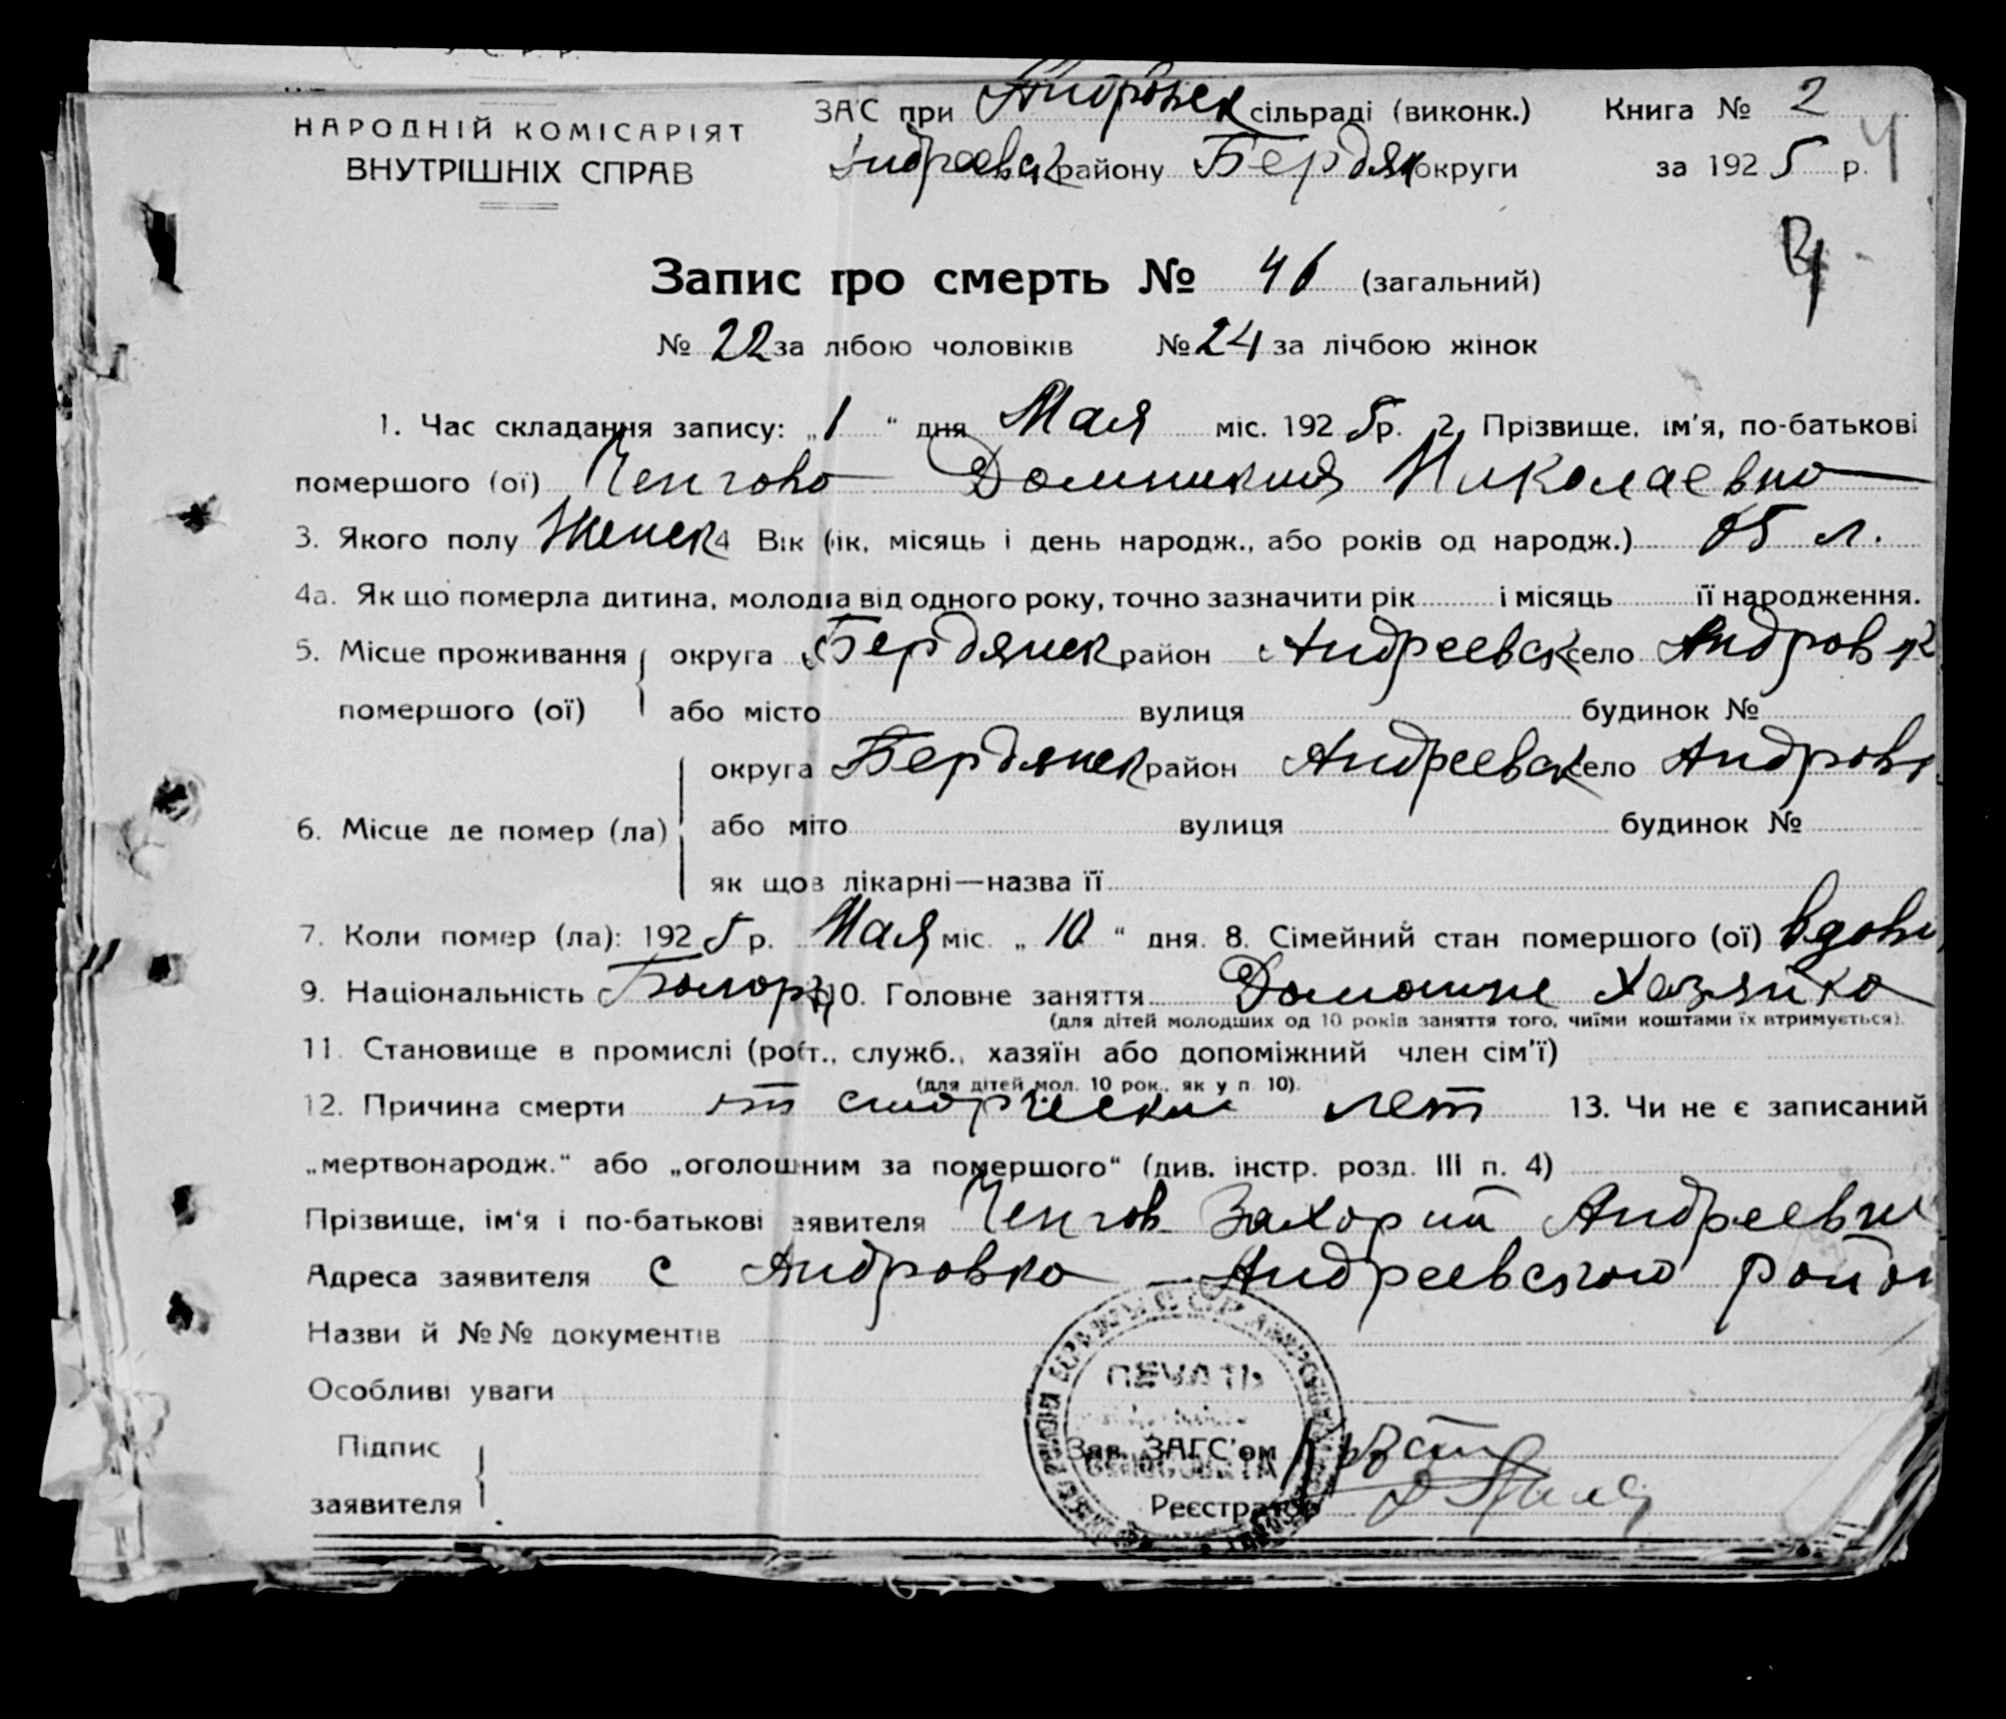 НАРОДНІЙ КОМІСАРІЯТ
ВНУТРІШНІХ СПРАВ
ЗАС при Андровск сільраді (виконк.)
Андреевск району Бердян округи
Книга № 2
за 1925 р. 4
Запис про смерть № 46 (загальний)
№ 22 за лібою чоловіків № 24 за лічбою жінок
1. Час складання запису: „1“ дня Мая міс. 1925 р. 2. Прізвище, ім'я, по-батькові
помершого (ої) Ченгова Домникия Николаевна
3. Якого полу Женск 4 Вік (рік, місяць і день народж., або років од народж.) 85 л.
4а. Якщо померла дитина, молодша від одного року, точно зазначити рік і місяць її народження.
5. Місце проживання округа Бердянск район Андреевск село Андровк
помершого (ої) або місто вулиця будинок №
округа Бердянск район Андреевск село Андровк
6. Місце де помер (ла) або міто вулиця будинок №
як що в лікарні—назва її
7. Коли помер (ла): 1925 р. Мая міс. „10“ дня. 8. Сімейний стан помершого (ої) вдова
9. Національність Болгарк 10. Головне заняття Домашне Хозяйка
(для дітей молодших од 10 років заняття того, чиїми коштами їх втримується).
11. Становище в промислі (робт., служб., хазяїн або допоміжний член сім'ї)
(для дітей мол. 10 рок., як у п. 10).
12. Причина смерти от старческих лет 13. Чи не є записаний
„мертвонародж.“ або „оголошним за помершого“ (див. інстр. розд. III п. 4)
Прізвище, ім'я і по-батькові заявителя Ченгов Захарий Андреевич
Адреса заявителя с Андровка - Андреевского район
Назви й №№ документів
Особливі уваги
ПЕЧАТЬ
Підпис
заявителя
Зав. ЗАГС'ом
Реєстратор